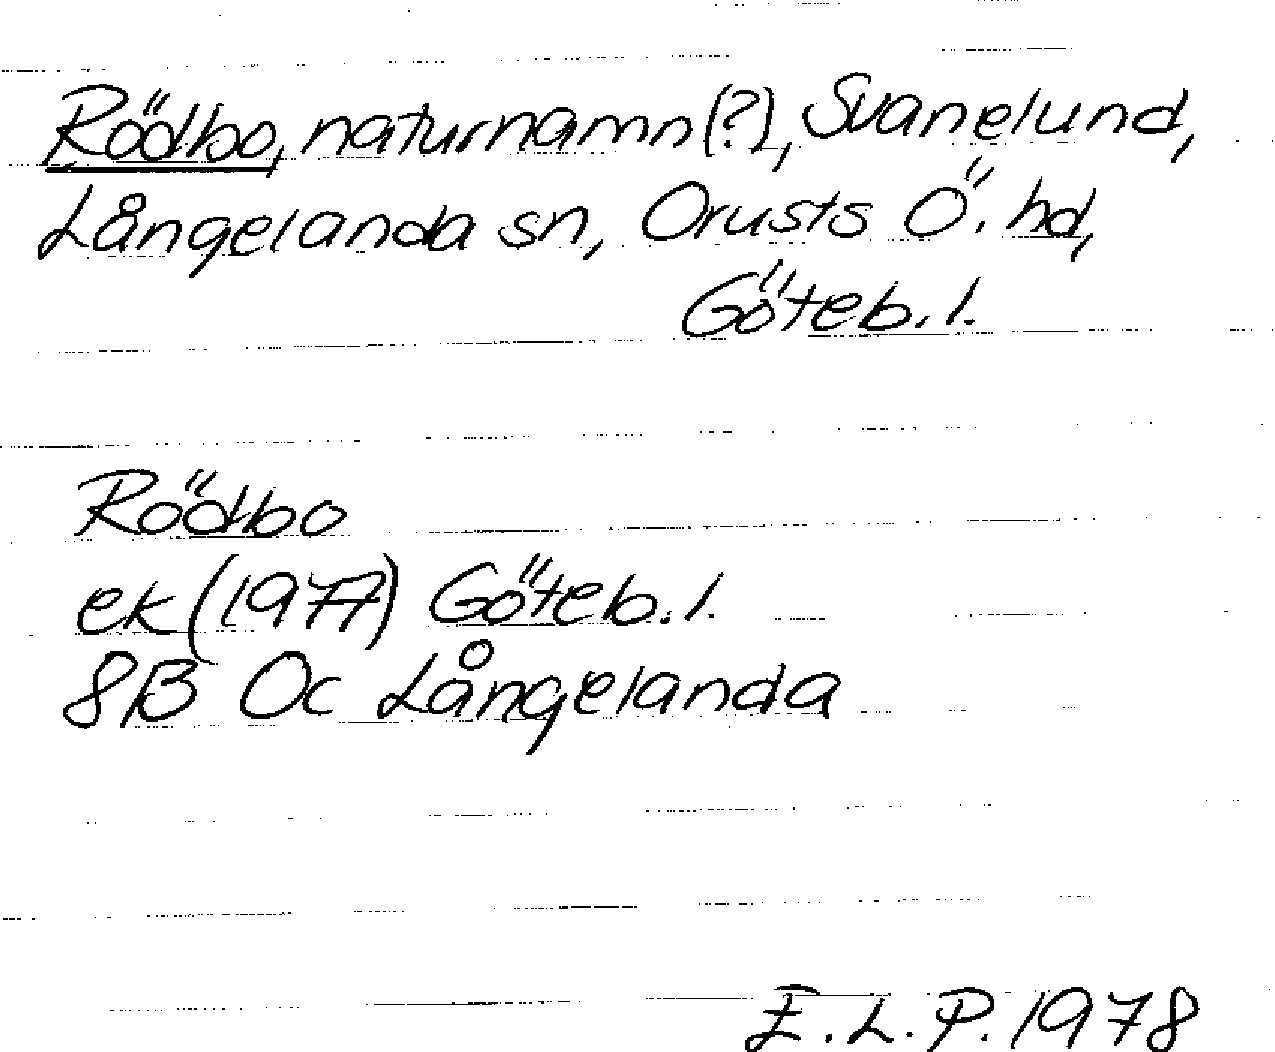 Rödbo, naturnamn (?), Svanelund,
Långelanda sn, Orusts Ö. hd,
Göteb. l.
Rödbo
ek (1977) Göteb. l.
8B Oc Långelanda
E. L. P. 1978